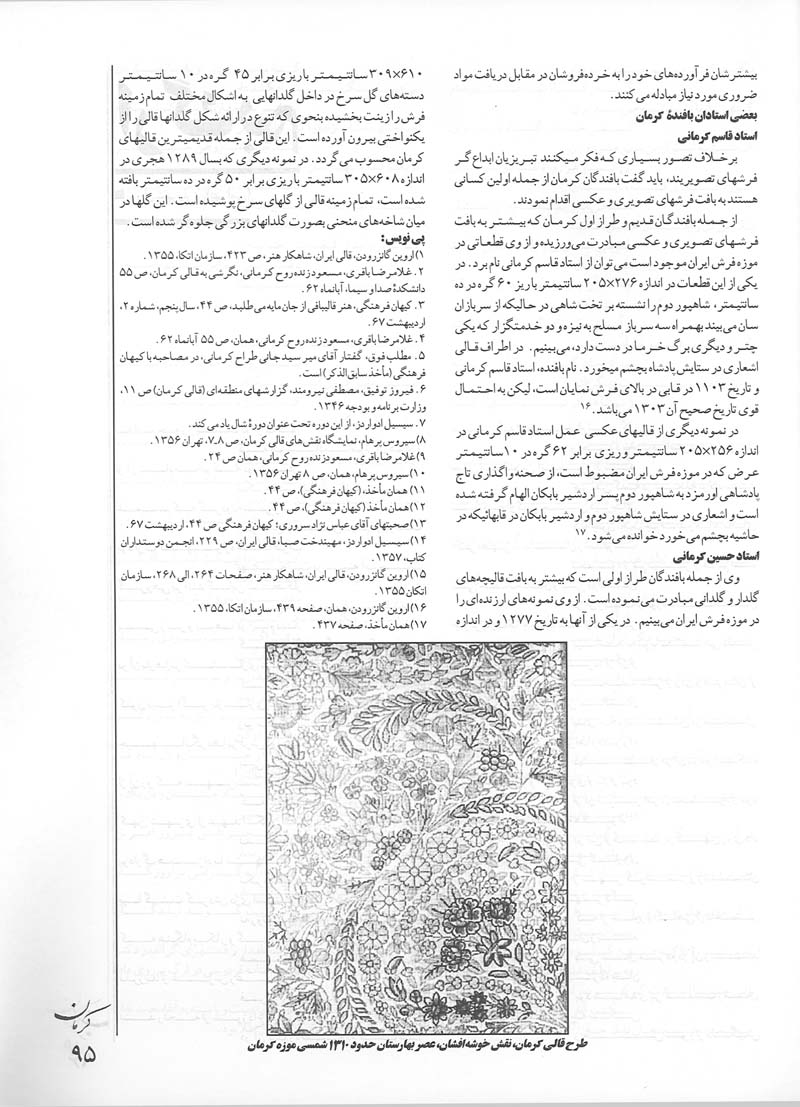 بیشترشان فرآورده‌های خود را به خرده‌فروشان در مقابل دریافت مواد
ضروری مورد نیاز مبادله می‌کنند.
بعضی استادان بافندهٔ کرمان
استاد قاسم کرمانی
برخلاف تصور بسیاری که فکر میکنند تبریزیان ابداع گر
فرشهای تصویریند، باید گفت بافندگان کرمان از جمله اولین کسانی
هستند به بافت فرشهای تصویری و عکسی اقدام نمودند.
از جمله بافندگان قدیم و طراز اول کرمان که بیشتر به بافت
فرشهای تصویری و عکسی مبادرت می‌ورزیده و از وی قطعاتی در
موزه فرش ایران موجود است می‌توان از استاد قاسم کرمانی نام برد. در
یکی از این قطعات در اندازه ۲۷۶×۲۰۵ سانتیمتر با ریز ۶۰ گره در ده
سانتیمتر، شاهپور دوم را نشسته بر تخت شاهی در حالیکه از سربازان
سان می‌بیند بهمراه سه سرباز مسلح به نیزه و دو خدمتگزار که یکی
چتر و دیگری برگ خرما در دست دارد، می‌بینیم. در اطراف قالی
اشعاری در ستایش پادشاه بچشم میخورد. نام بافنده، استاد قاسم کرمانی
و تاریخ ۱۱۰۳ در قابی در بالای فرش نمایان است، لیکن به احتمال
قوی تاریخ صحیح آن ۱۳۰۳ می‌باشد.۱۶
در نمونه دیگری از قالیهای عکسی عمل استاد قاسم کرمانی در
اندازه ۲۵۶×۲۰۵ سانتیمتر و ریزی برابر ۶۲ گره در ۱۰ سانتیمتر
عرض که در موزه فرش ایران مضبوط است، از صحنه واگذاری تاج
پادشاهی اورمزد به شاهپور دوم پسر اردشیر بابکان الهام گرفته شده
است و اشعاری در ستایش شاهپور دوم و اردشیر بابکان در قابهائیکه در
حاشیه بچشم می‌خورد خوانده می‌شود.۱۷
استاد حسین کرمانی
وی از جمله بافندگان طراز اولی است که بیشتر به بافت قالیچه‌های
گلدار و گلدانی مبادرت می‌نموده است. از وی نمونه‌های ارزنده‌ای را
در موزه فرش ایران می‌بینیم. در یکی از آنها به تاریخ ۱۲۷۷ و در اندازه
۶۱۰×۳۰۹ سانتیمتر با ریزی برابر ۴۵ گره در ۱۰ سانتیمتر
دسته‌های گل سرخ در داخل گلدانهایی به اشکال مختلف تمام زمینه
فرش را زینت بخشیده بنحوی که تنوع در ارائه شکل گلدانها قالی را از
یکنواختی بیرون آورده است. این قالی از جمله قدیمیترین قالیهای
کرمان محسوب می‌گردد. در نمونه دیگری که بسال ۱۲۸۹ هجری در
اندازه ۶۰۸×۳۰۵ سانتیمتر با ریزی برابر ۵۰ گره در ده سانتیمتر بافته
شده است، تمام زمینه قالی از گلهای سرخ پوشیده است. این گلها در
میان شاخه‌های منحنی بصورت گلدانهای بزرگی جلوه گر شده است.
پی نویس:
۱) اروین گانزرودن، قالی ایران، شاهکار هنر، ص ۴۲۳، سازمان اتکا، ۱۳۵۵.
۲. غلامرضا باقری، مسعود زنده روح کرمانی، نگرشی به قالی کرمان، ص ۵۵
دانشکدهٔ صدا و سیما، آبانماه ۶۲.
۳. کیهان فرهنگی، هنر قالیبافی از جان مایه می‌طلبد، ص ۴۴، سال پنجم، شماره ۲،
اردیبهشت ۶۷.
۴. غلامرضا باقری، مسعود زنده روح کرمانی، همان، ص ۵۵ آبانماه ۶۲.
۵. مطلب فوق، گفتار آقای میر سید جانی طراح کرمانی، در مصاحبه با کیهان
فرهنگی (مأخذ سابق‌الذکر) است.
۶. فیروز توفیق، مصطفی نیرومند، گزارشهای منطقه‌ای (قالی کرمان) ص ۱۱،
وزارت برنامه و بودجه ۱۳۴۶.
۷. سیسیل ادواردز، از این دوره تحت عنوان دورهٔ شال یاد می‌کند.
۸) سیروس پرهام، نمایشگاه نقش‌های قالی کرمان، ص ۷ـ۸، تهران ۱۳۵۶.
۹) غلامرضا باقری، مسعود زنده روح کرمانی، همان ص ۲۴.
۱۰) سیروس پرهام، همان، ص ۸ تهران ۱۳۵۶.
۱۱) همان مأخذ، (کیهان فرهنگی)، ص ۴۴.
۱۲) همان مأخذ (کیهان فرهنگی)، ص ۴۴.
۱۳) صحبتهای آقای عباس نژاد سروری؛ کیهان فرهنگی ص ۴۴، اردیبهشت ۶۷.
۱۴) سیسیل ادواردز، مهیندخت صبا، قالی ایران، ص ۲۲۹، انجمن دوستداران
کتاب، ۱۳۵۷.
۱۵) اروین گانزرودن، قالی ایران، شاهکار هنر، صفحات ۲۶۴، الی ۲۶۸، سازمان
اتکان ۱۳۵۵.
۱۶) اروین گانزرودن، همان، صفحه ۴۳۹، سازمان اتکا، ۱۳۵۵.
۱۷) همان مأخذ، صفحه ۴۳۷.
طرح قالی کرمان، نقش خوشه افشان، عصر بهارستان حدود ۱۳۱۰ شمسی موزه کرمان
کرمان
۹۵